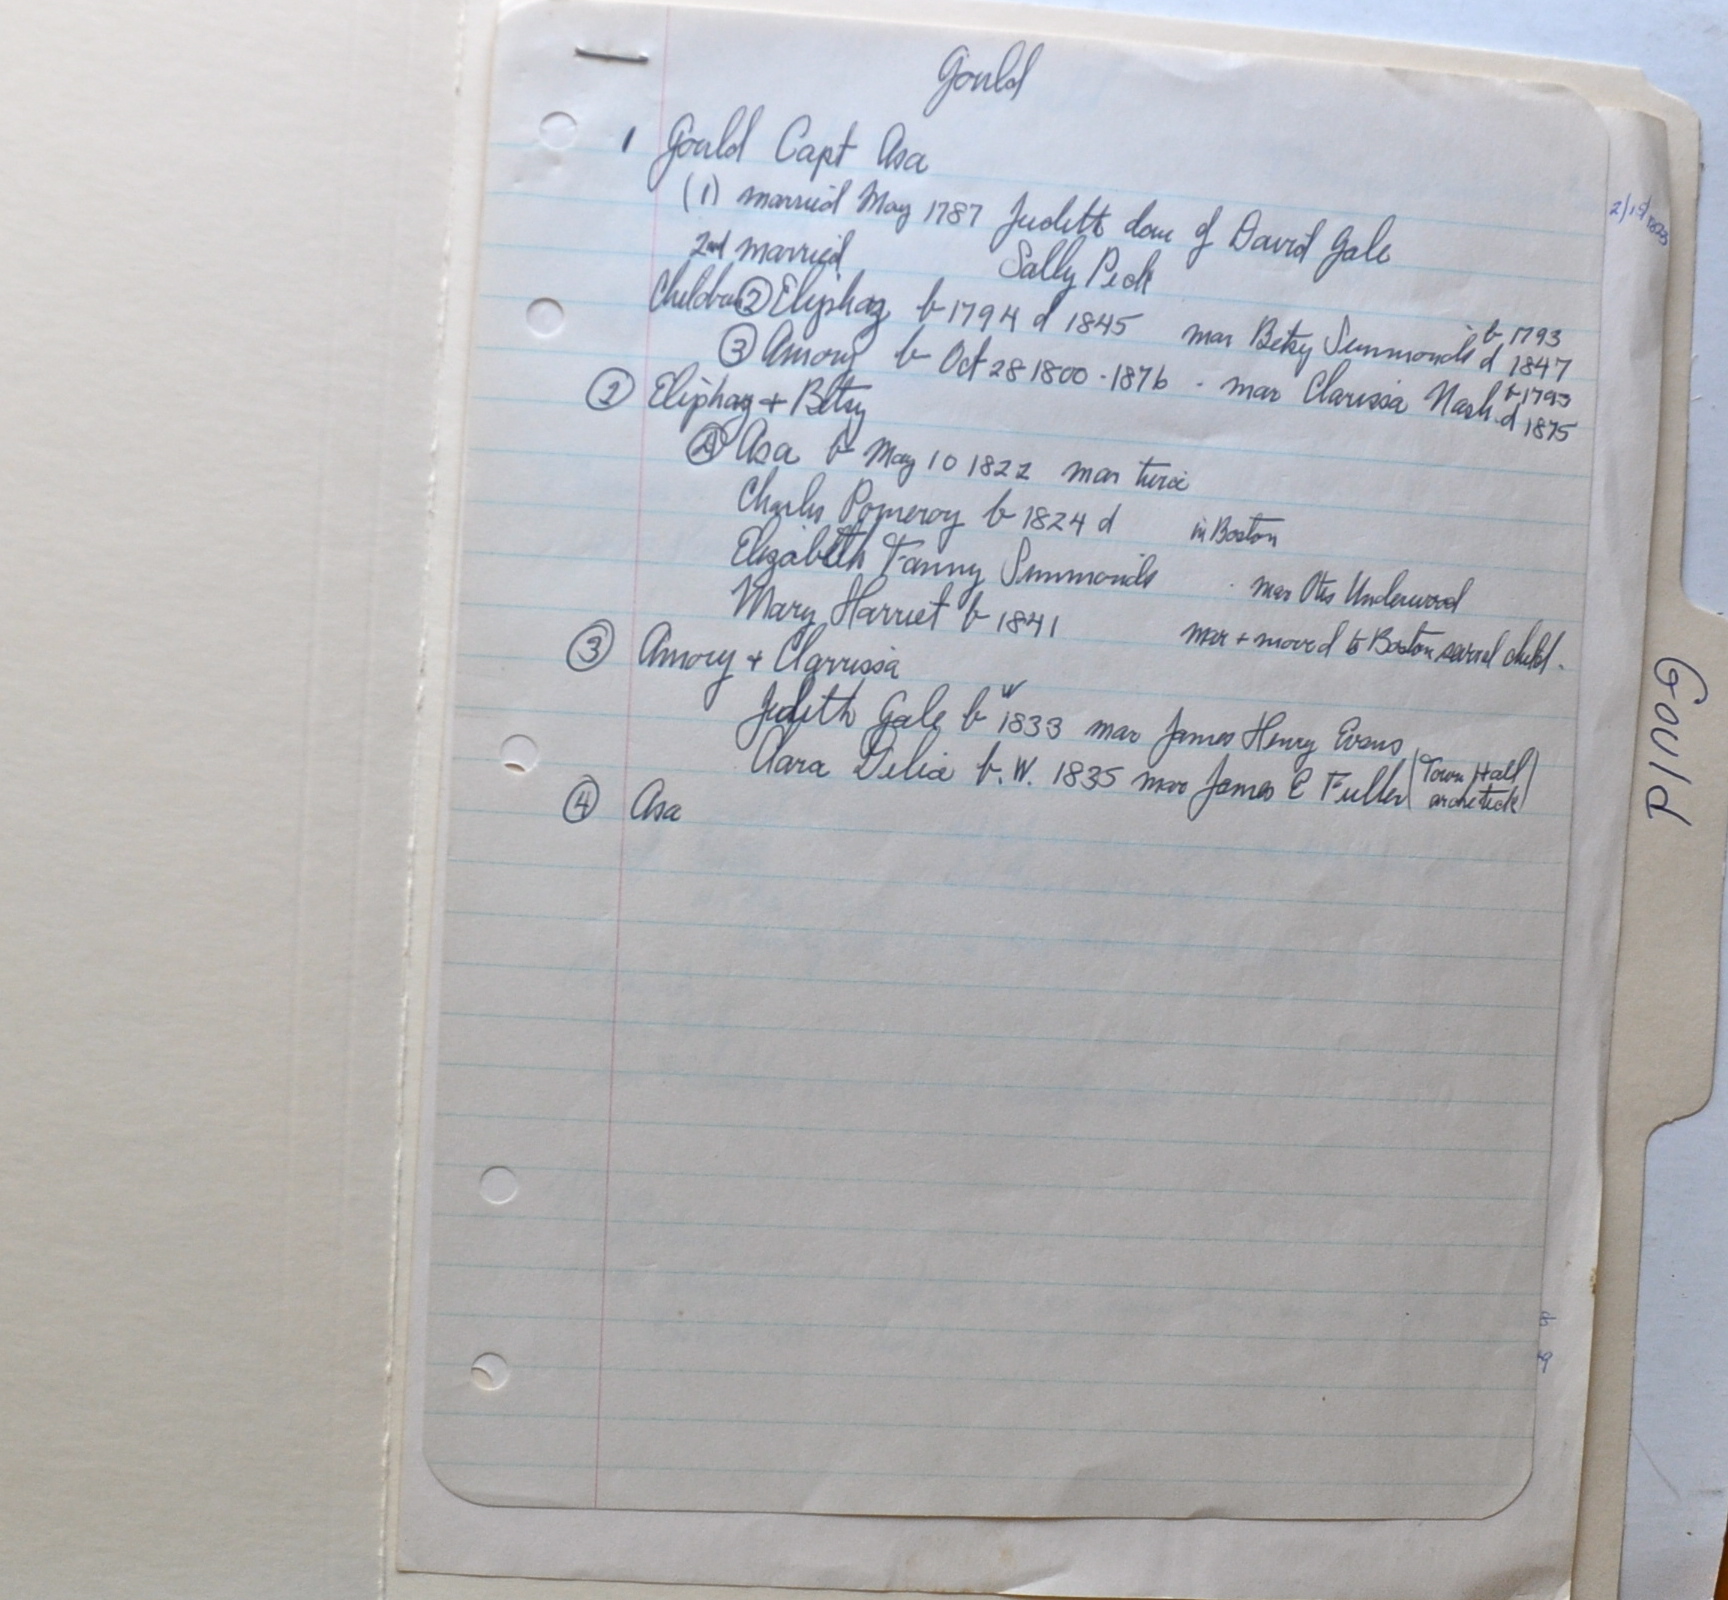 Gould
1 Gould Capt Asa
(1) married May 1787 Judith dau of David Gale
2nd married Sally Peck
Children ② Eliphaz b 1794 d 1845 mar Betsy Simmonds b 1793 d 1847
③ Amory b Oct 28 1800 - 1876 - mar Clarissa Nash b 1793 d 1875
② Eliphaz + Betsy
④ Asa b May 10 1822 mar twice
Charles Pomeroy b 1824 d in Boston
Elizabeth Fanny Simmonds - mar Otis Underwood
Mary Harriet b 1841 mar + moved to Boston several child.
③ Amory + Clarrissa
Judith Gale b W 1833 mar James Henry Evans
Clara Delia b. W. 1835 mar James E Fuller (Town Hall architect)
④ Asa
Gould